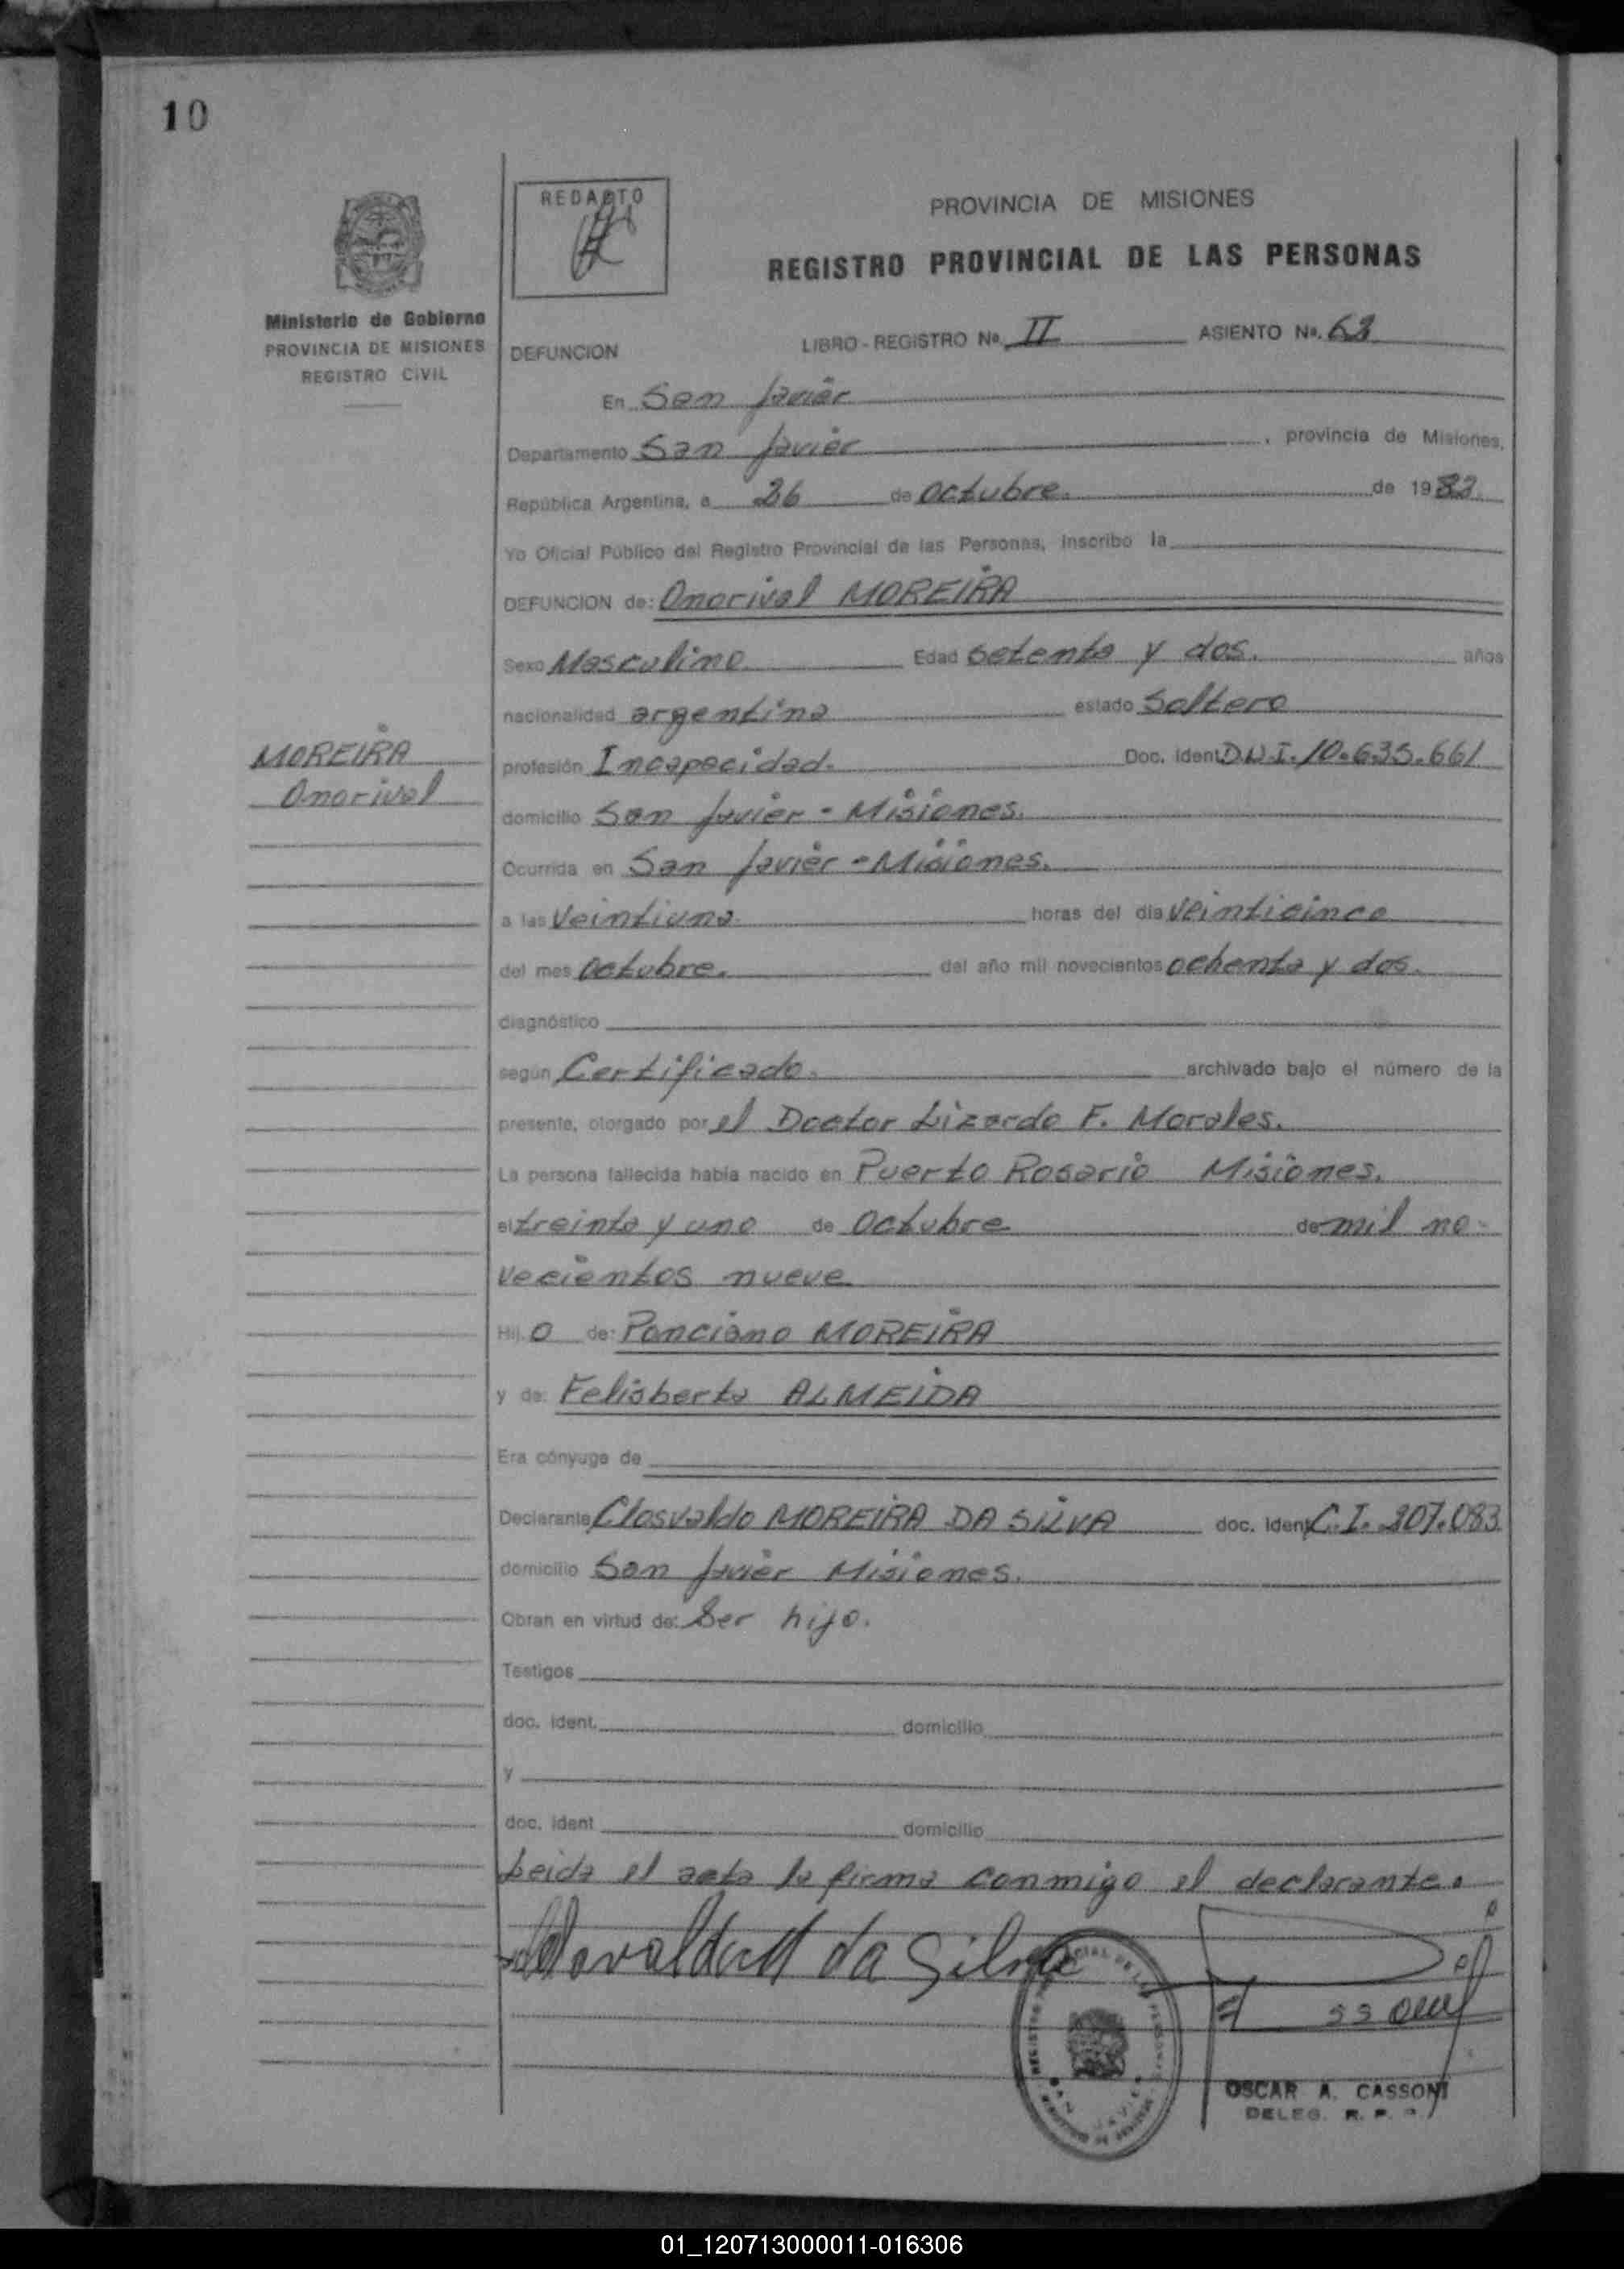 10
REDACTO
PROVINCIA DE MISIONES
REGISTRO PROVINCIAL DE LAS PERSONAS
Ministerio de Gobierno
PROVINCIA DE MISIONES
REGISTRO CIVIL
LIBRO - REGISTRO No. II ASIENTO No. 63
DEFUNCION
En San Javier
Departamento San Javier, provincia de Misiones,
República Argentina, a 26 de Octubre. de 1982
Yo Oficial Público del Registro Provincial de las Personas, inscribo la
DEFUNCION de: Onorival MOREIRA
Sexo Masculino Edad setenta y dos. años
nacionalidad argentina estado Soltero
MOREIRA
Onorival
profesión Incapacidad. Doc. Ident. D.N.I. 10.635.661
domicilio San Javier - Misiones.
Ocurrida en San Javier - Misiones.
a las Veintiuna horas del día veinticinco
del mes Octubre. del año mil novecientos ochenta y dos.
diagnóstico
según Certificado. archivado bajo el número de la
presente, otorgado por el Doctor Lizardo F. Morales.
La persona fallecida había nacido en Puerto Rosario Misiones.
el treinta y uno de Octubre de mil no-
vecientos nueve
Hij o de: Ponciano MOREIRA
y de: Felisberta ALMEIDA
Era cónyuge de
Declarante Closvaldo MOREIRA DA SILVA doc. Ident C.I. 307.083
domicilio San Javier Misiones.
Obran en virtud de: Ser hijo.
Testigos
doc. ident. domicilio
y
doc. ident domicilio
Leida el acta la firma conmigo el declarante.
da Silva
OSCAR A. CASSONI
DELEG. R. P. P.
01_120713000011-016306